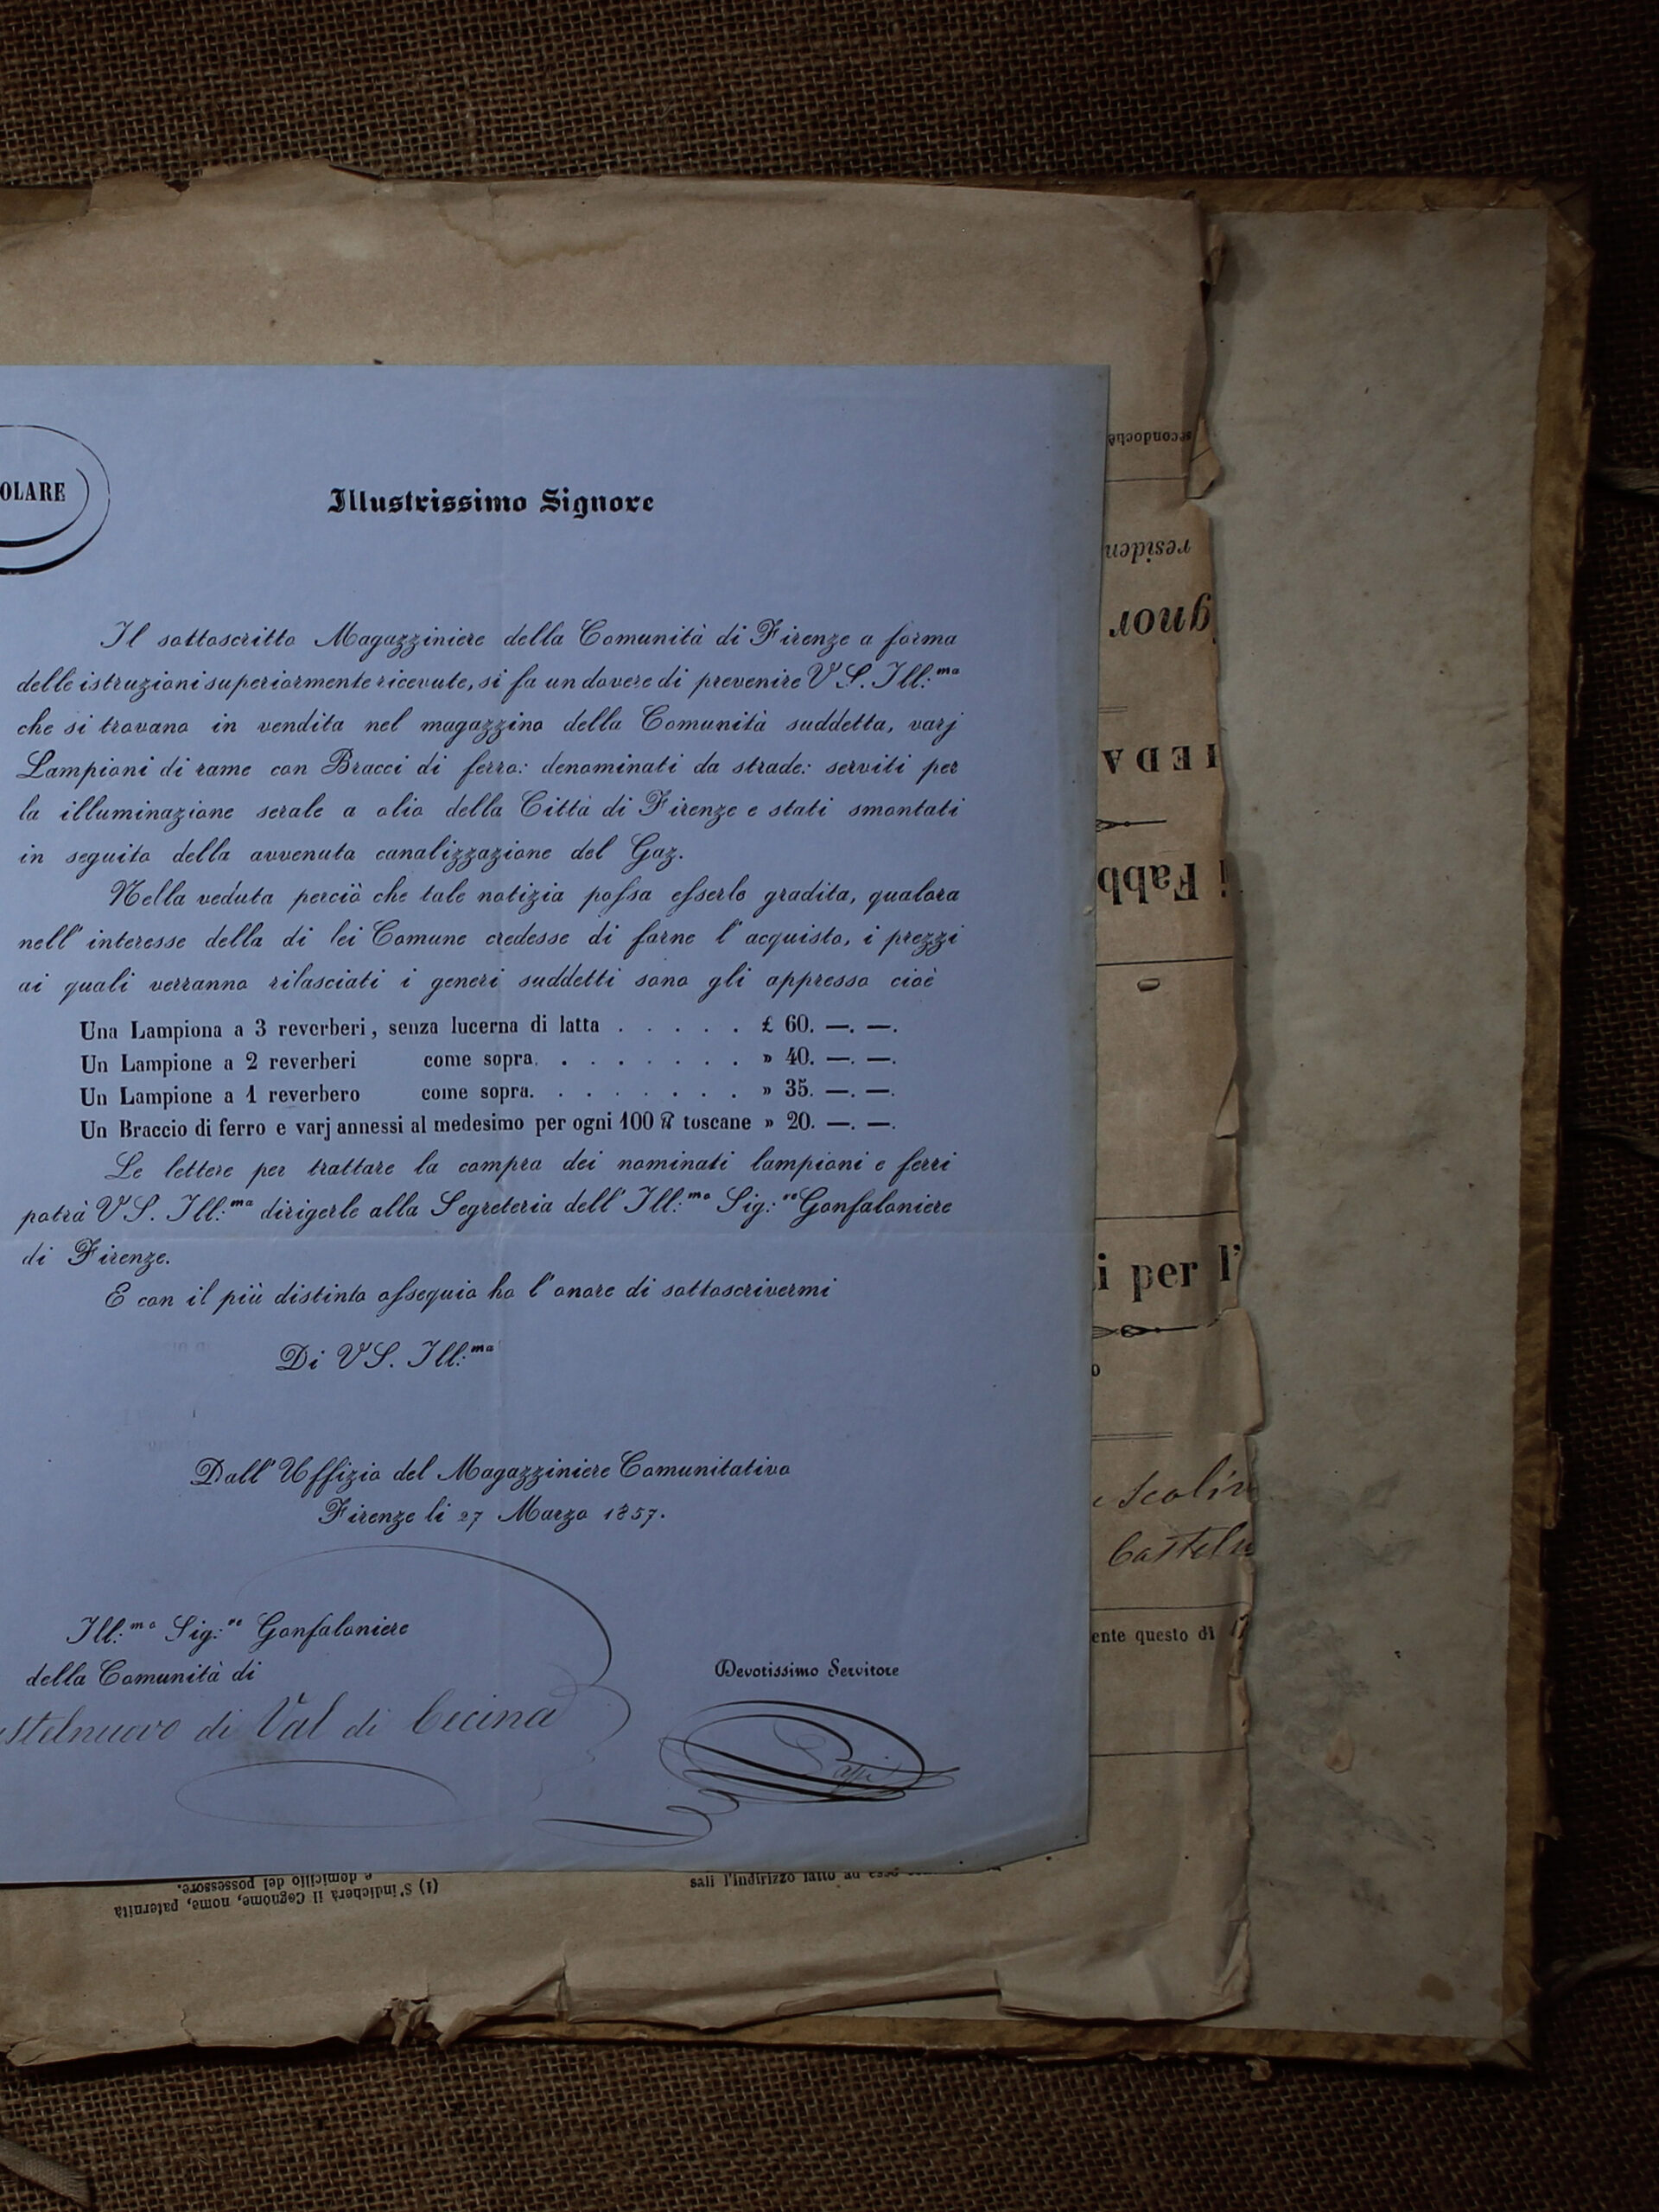 OLARE
Illustrissimo Signore
Il sottoscritto Magazziniere della Comunità di Firenze a forma
delle istruzioni superiormente ricevute, si fa un dovere di prevenire V S. Ill:ma
che si trovano in vendita nel magazzino della Comunità suddetta, varj
Lampioni di rame con Bracci di ferro: denominati da strade: serviti per
la illuminazione serale a olio della Città di Firenze e stati smontati
in seguito della avvenuta canalizzazione del Gaz.
Nella veduta perciò che tale notizia possa esserle gradita, qualora
nell' interesse della di lei Comune credesse di farne l' acquisto, i prezzi
ai quali verranno rilasciati i generi suddetti sono gli appresso cioè
Una Lampiona a 3 reverberi, senza lucerna di latta . . . . . £ 60. —. —.
Un Lampione a 2 reverberi come sopra. . . . . . . . » 40. —. —.
Un Lampione a 1 reverbero come sopra. . . . . . . . » 35. —. —.
Un Braccio di ferro e varj annessi al medesimo per ogni 100 ℔ toscane » 20. —. —.
Le lettere per trattare la compra dei nominati lampioni e ferri
potrà V S. Ill:ma dirigerle alla Segreteria dell' Ill:mo Sig:re Gonfaloniere
di Firenze.
E con il più distinto ossequio ho l' onore di sottoscrivermi
Di V S. Ill:ma
Dall' Uffizio del Magazziniere Comunitativo
Firenze li 27 Marzo 1857.
Ill:mo Sig:re Gonfaloniere
della Comunità di
stelnuovo di Val di Cecina
Devotissimo Servitore
secondochè
residen
gnor
IEDA
i Fabb
i per l'
o
Scolin
Casteln
ente questo dì 17
(1) S'indicherà il Cognome, nome, paternità
e domicilio del possessore.
sali l'indirizzo fatto ad esse